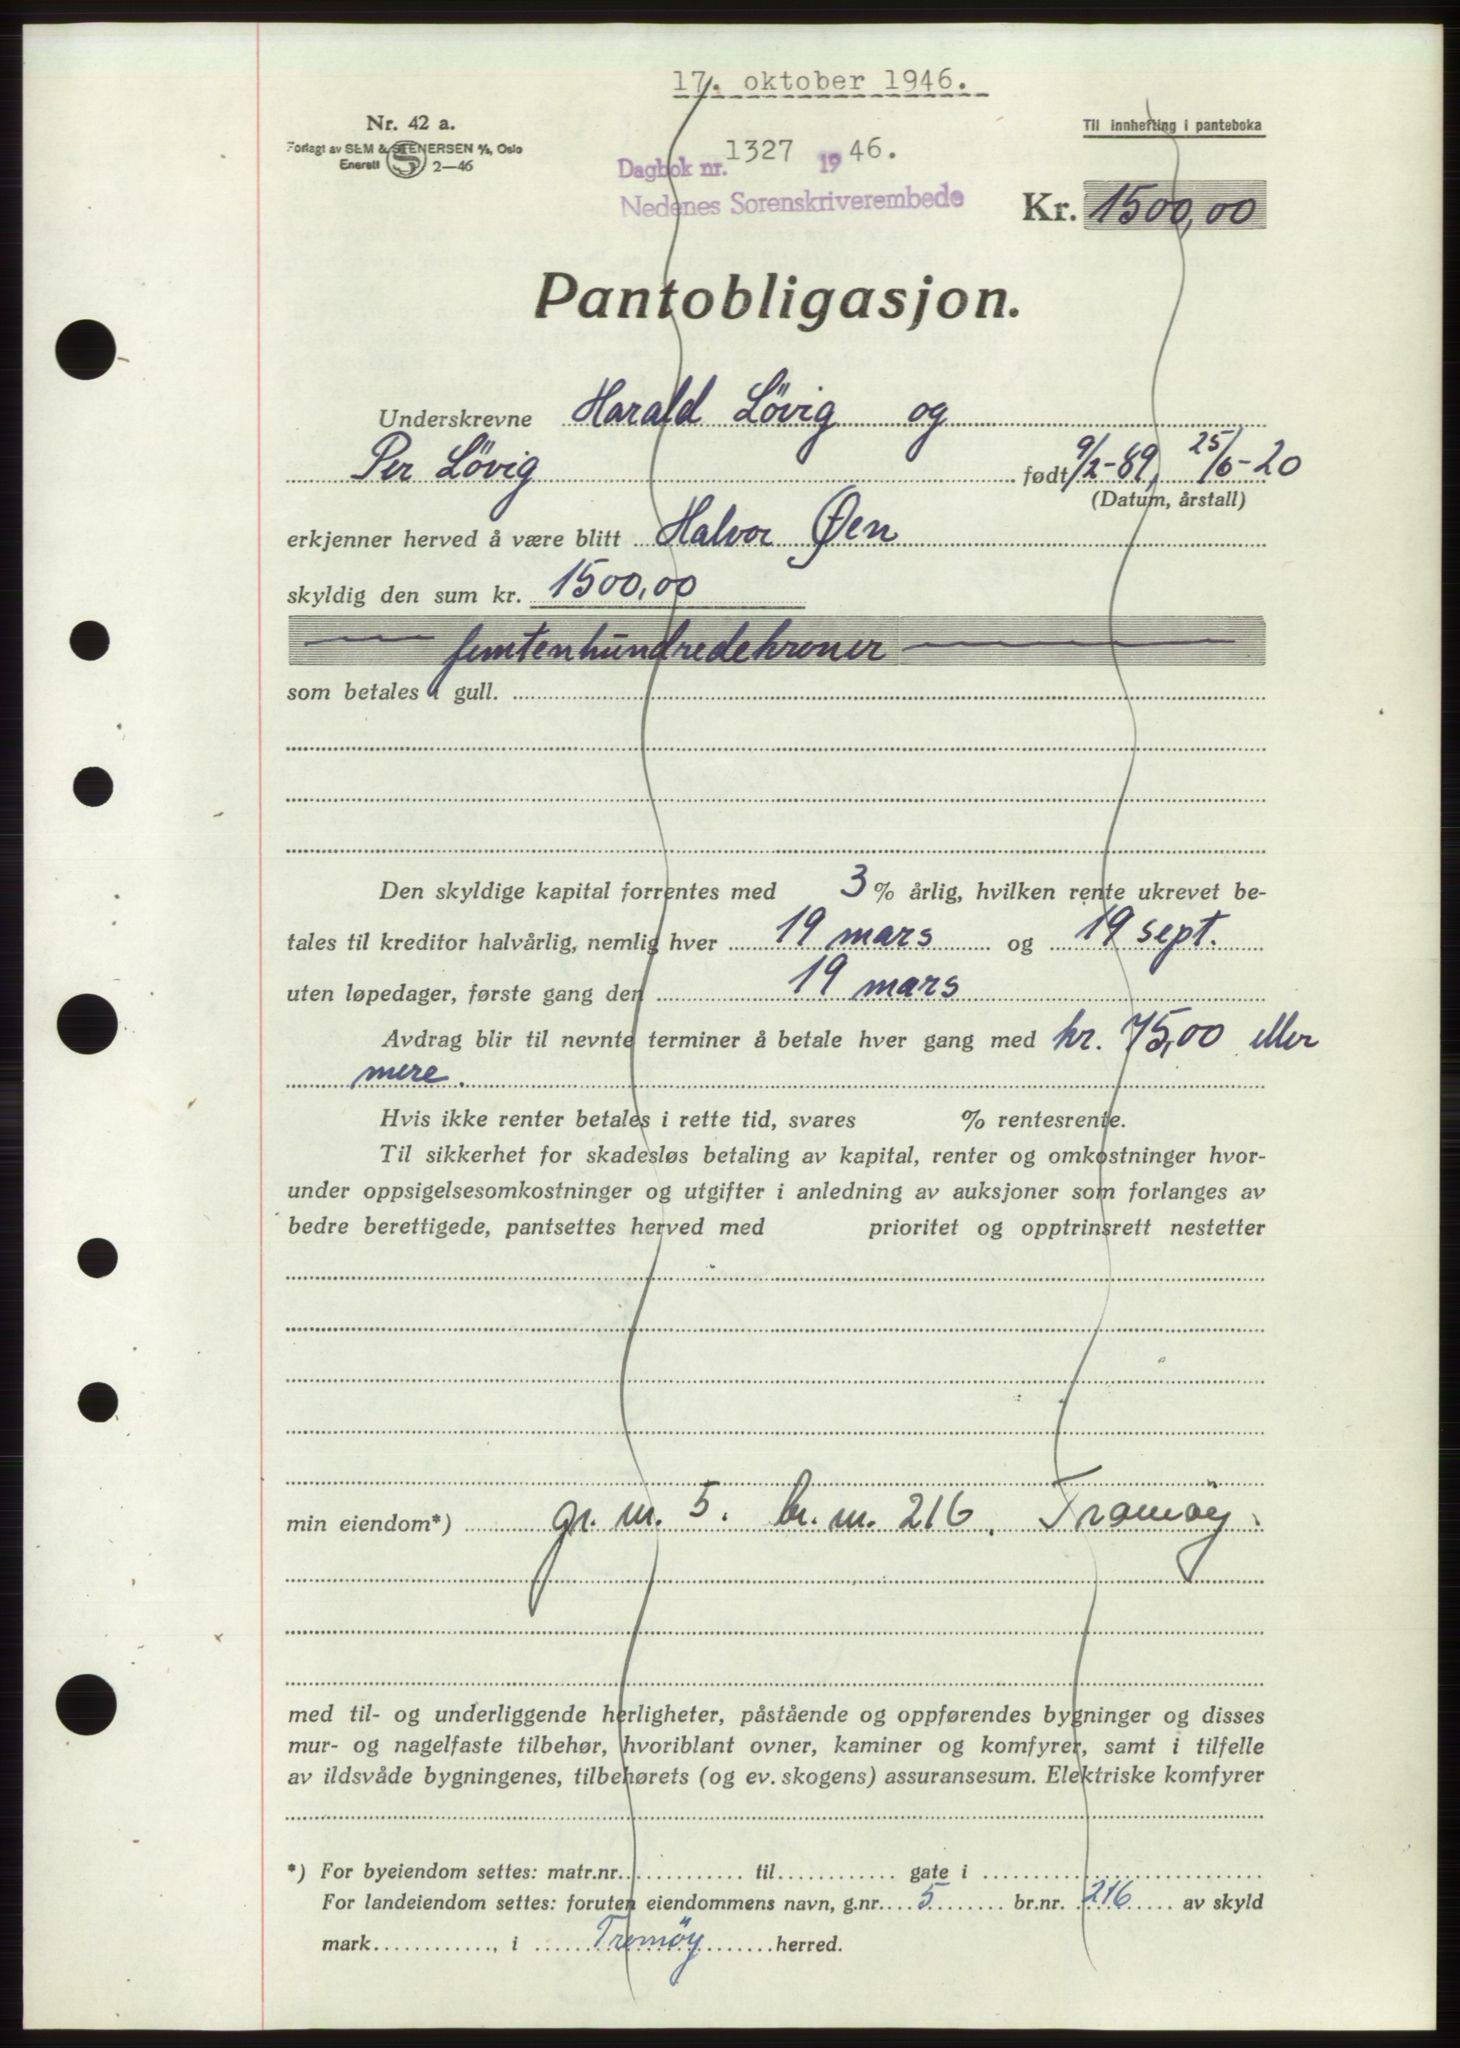 17. oktober 1946.
Nr. 42 a.
Forlagt av SEM & STENERSEN A/S, Oslo
Enerett 2—46
Til innhefting i panteboka
Dagbok nr. 1327 1946.
Nedenes Sorenskriverembede
Kr. 1500,00
Pantobligasjon.
Underskrevne Harald Lövig og
Per Lövig født 9/2-89, 25/6-20
(Datum, årstall)
erkjenner herved å være blitt Halvor Øen
skyldig den sum kr. 1500,00
femtenhundredekroner
som betales i gull.
Den skyldige kapital forrentes med 3 % årlig, hvilken rente ukrevet be-
tales til kreditor halvårlig, nemlig hver 19 mars og 19 sept.
uten løpedager, første gang den 19 mars
Avdrag blir til nevnte terminer å betale hver gang med kr. 75,00 eller
mere.
Hvis ikke renter betales i rette tid, svares % rentesrente.
Til sikkerhet for skadesløs betaling av kapital, renter og omkostninger hvor-
under oppsigelsesomkostninger og utgifter i anledning av auksjoner som forlanges av
bedre berettigede, pantsettes herved med prioritet og opptrinsrett nestetter
min eiendom*) gr. nr. 5. br. nr. 216. Tromøy.
med til- og underliggende herligheter, påstående og oppførendes bygninger og disses
mur- og nagelfaste tilbehør, hvoriblant ovner, kaminer og komfyrer, samt i tilfelle
av ildsvåde bygningenes, tilbehørets (og ev. skogens) assuransesum. Elektriske komfyrer
*) For byeiendom settes: matr.nr. til gate i
For landeiendom settes: foruten eiendommens navn, g.nr. 5 br.nr. 216 av skyld
mark, i Tromöy herred.